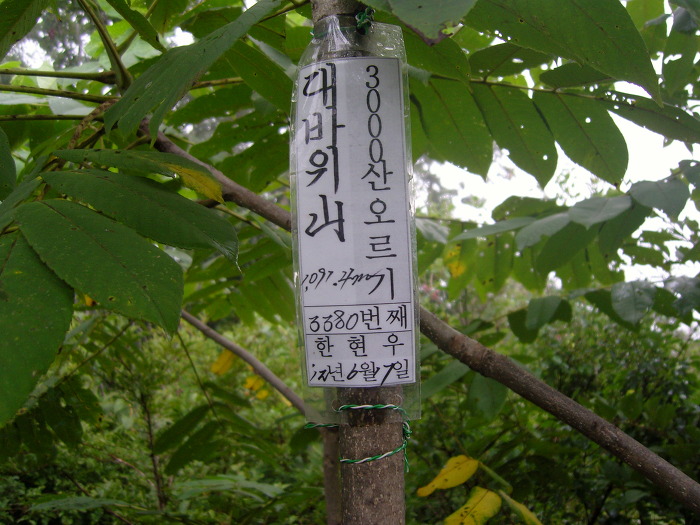 3000산오르기
대바위산
1,091.4m
3380번째
한현우
'12년6월17일